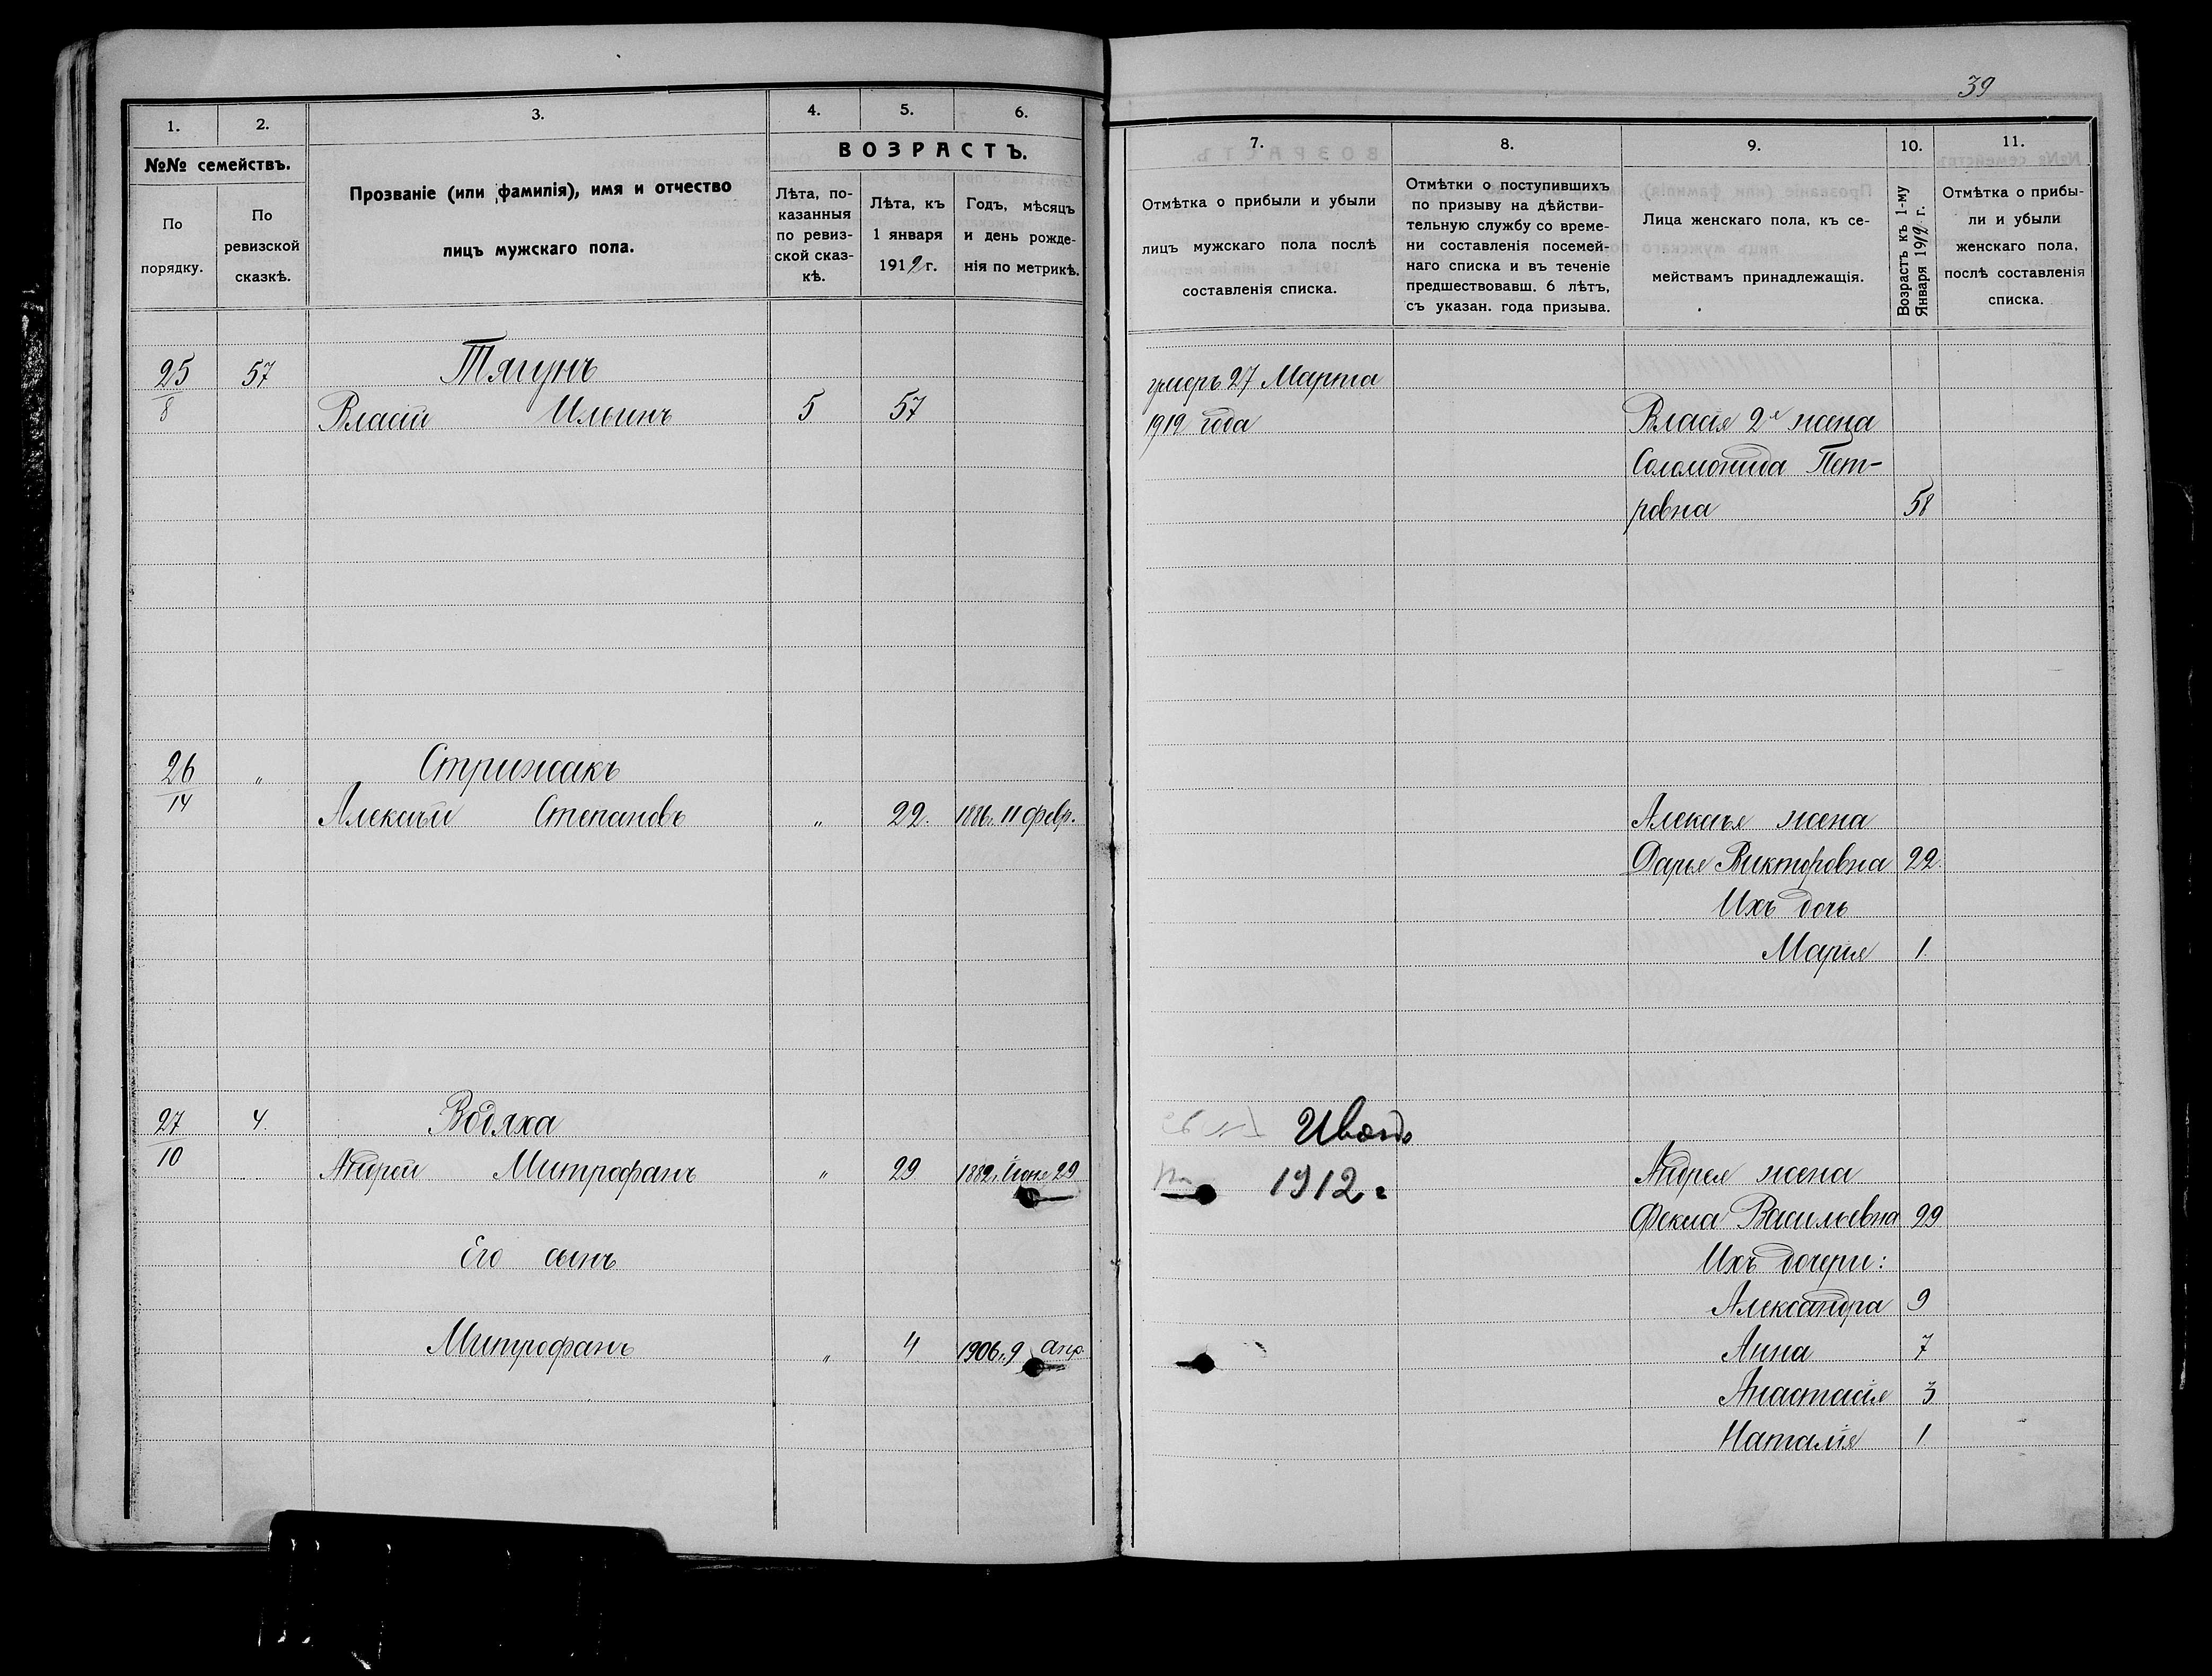 39
1.
2.
3.
4.
5.
6.
№№ семействъ.
По порядку.
По ревизской сказкѣ.
Прозваніе (или фамилія), имя и отчество
лицъ мужскаго пола.
ВОЗРАСТЪ.
Лѣта, по-
казанныя
по ревиз-
ской сказ-
кѣ.
Лѣта, къ
1 января
1912 г.
Годъ, мѣсяцъ
и день рожде-
нія по метрикѣ.
7.
8.
9.
10.
11.
Отмѣтка о прибыли и убыли
лицъ мужскаго пола послѣ
составленія списка.
Отмѣтки о поступившихъ
по призыву на дѣйстви-
тельную службу со време-
ни составленія посемей-
наго списка и въ теченіе
предшествовавш. 6 лѣтъ,
съ указан. года призыва.
Лица женскаго пола, къ се-
мействамъ принадлежащія.
Возрастъ къ 1-му
Января 1912 г.
Отмѣтка о прибы-
ли и убыли
женскаго пола,
послѣ составленія
списка.
25 57 Тягунъ умеръ 27 Марта
8 Власій Ильинъ 5 57 1912 года Власія 2я жена
Соломонида Пет-
ровна 58
26 " Стрижакъ
14 Алексѣй Степановъ " 22. 1886г. 11 февр. Алексѣя жена
Дарья Викторовна 22.
Ихъ дочь
Марія 1.
27 4. Водяха
10 Андрей Митрофанъ " 29 1882г. Іюня 29 1912 г Андрея жена
Фекла Васильевна 29
Его сынъ Ихъ дочери:
Александра 9
Митрофанъ " 4 1906г. 9 апр. Анна 7
Анастасія 3
Наталія 1